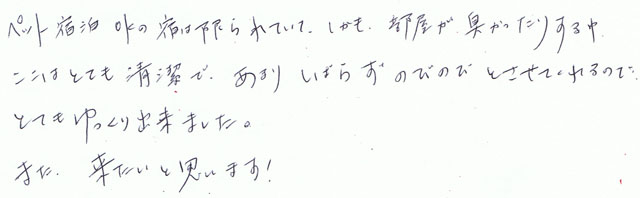 ペット宿泊OKの宿は限られていて、しかも、部屋が臭かったりする中
ここはとても清潔で、あまりしばらずのびのびとさせてくれるので、
とてもゆっくり出来ました。
また、来たいと思います!